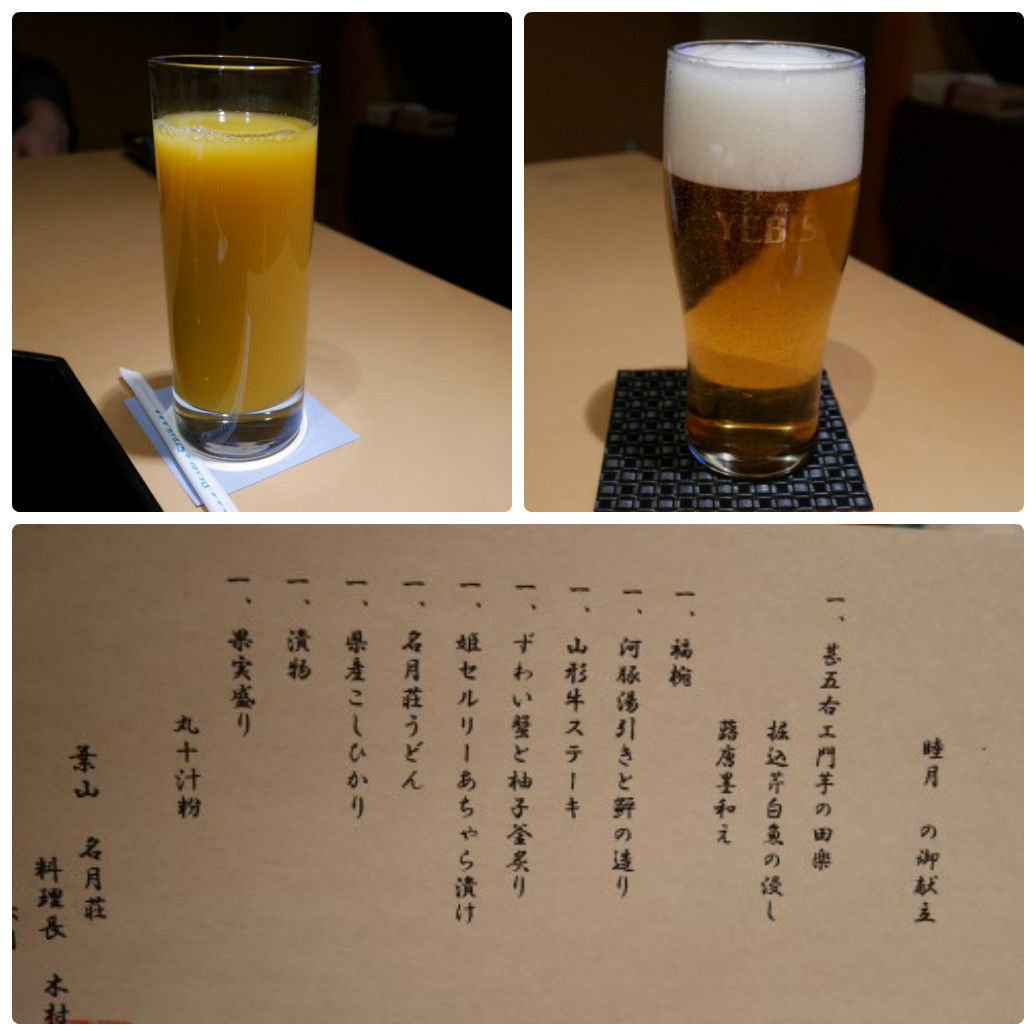 YEBIS
睦月 の御献立
一、甚五右エ門芋の田楽
掘込芹白魚の浸し
蕗唐墨和え
一、福椀
一、河豚湯引きと鮃の造り
一、山形牛ステーキ
一、ずわい蟹と柚子釜炙り
一、姫セルリーあちゃら漬け
一、名月荘うどん
一、県産こしひかり
一、漬物
一、果実盛り
丸十汁粉
葉山 名月荘
料理長 木村